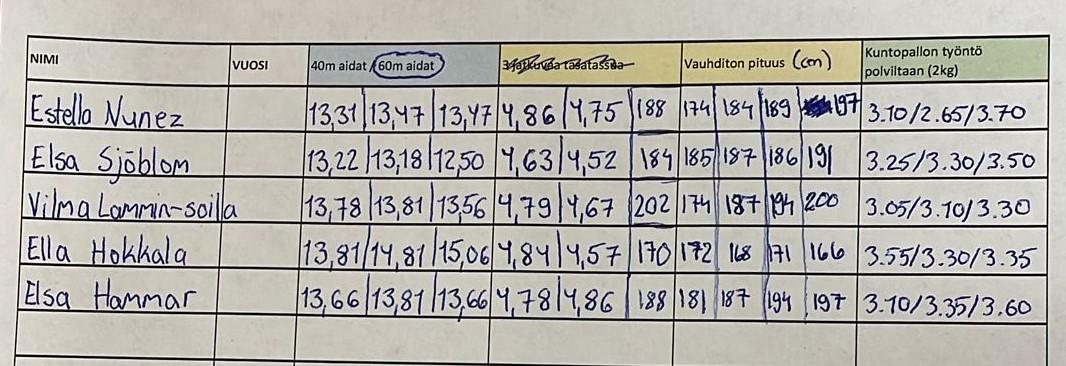 NIMI VUOSI 40m aidat /60m aidat 3-jatkuvaa tasatassua Vauhditon pituus (cm) Kuntopallon työntö polviltaan (2kg)
Estella Nunez 13,31 13,47 13,47 4,86 4,75 188 174 184 189 197 3.10/2.65/3.70
Elsa Sjöblom 13,22 13,18 12,50 4,63 4,52 184 185 187 186 191 3.25/3.30/3.50
Vilma Lammin-soila 13,78 13,81 13,56 4,79 4,67 202 174 187 194 200 3.05/3.10/3.30
Ella Hokkala 13,81 14,81 15,06 4,84 4,57 170 172 168 171 166 3.55/3.30/3.35
Elsa Hammar 13,66 13,81 13,66 4,78 4,86 188 181 187 194 197 3.10/3.35/3.60